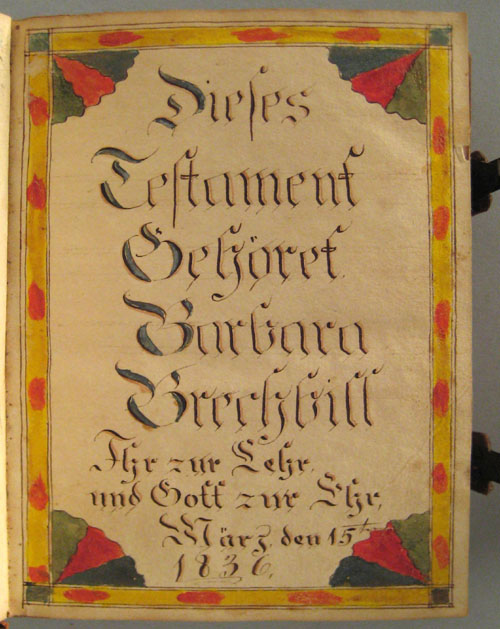 Dieses
Testament
Gehöret
Barbara
Brechbill
Ihr zur Lehr,
und Gott zur Ehr,
März den 15ten
1836.